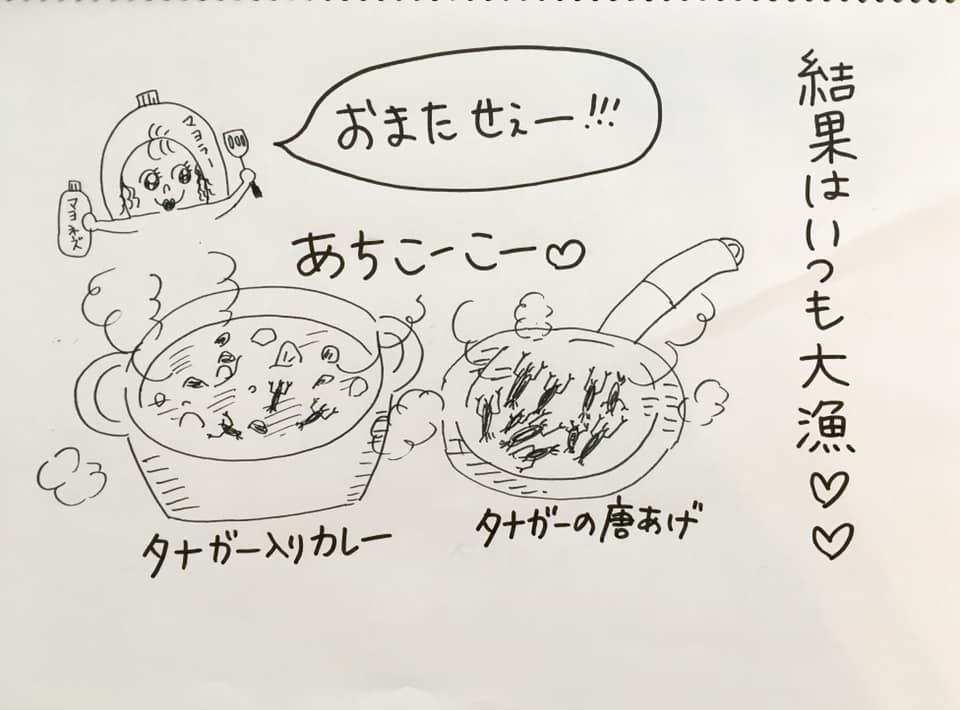 結果はいつも大漁♡♡
おまたせぇー!!!
マヨラー
マヨネーズ
あちこーこー♡
タナガー入りカレー
タナガーの唐あげ